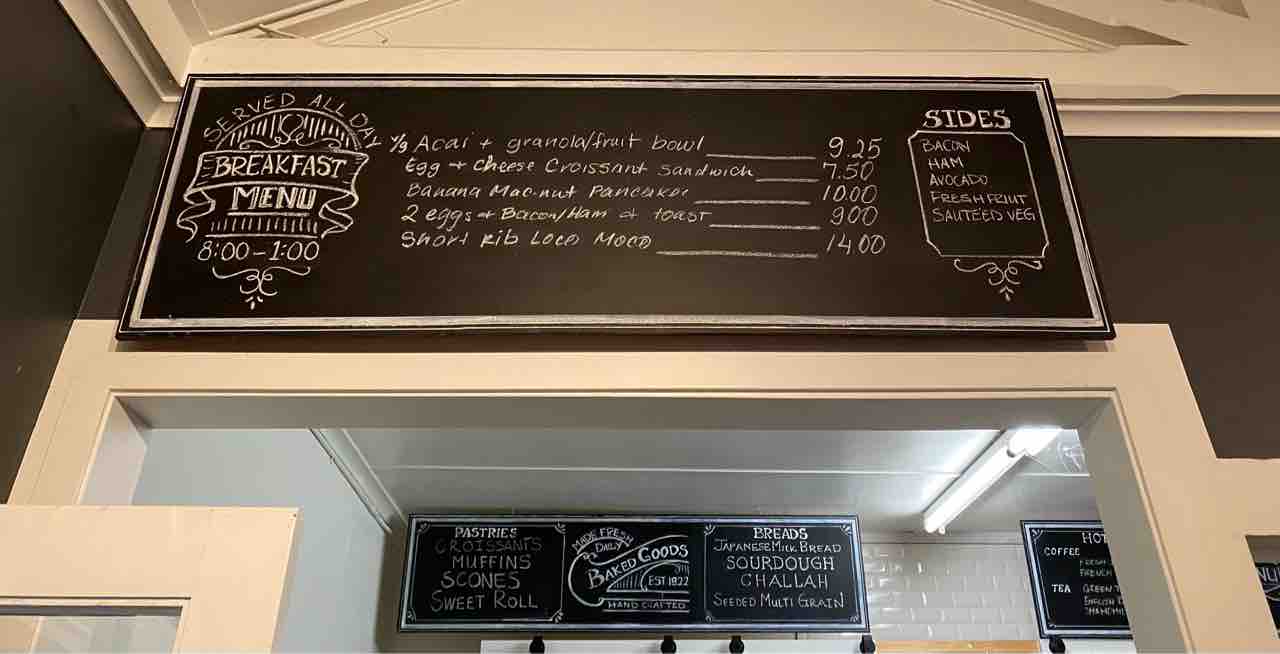 SERVED ALL DAY
BREAKFAST
MENU
8:00-1:00
V/g Acai + granola/fruit bowl 9.25
Egg + Cheese Croissant sandwich 7.50
Banana Mac-nut Pancakes 10.00
2 eggs + Bacon/Ham + toast 9.00
Short Rib Loco Moco 14.00
SIDES
BACON
HAM
AVOCADO
FRESH FRUIT
SAUTEED VEG
PASTRIES
CROISSANTS
MUFFINS
SCONES
SWEET ROLL
MADE FRESH
DAILY
BAKED GOODS
EST 1922
HAND CRAFTED
BREADS
JAPANESE MILK BREAD
SOURDOUGH
CHALLAH
SEEDED MULTI GRAIN
HOT
COFFEE
FRENCH
TEA
GREEN
ENGLISH